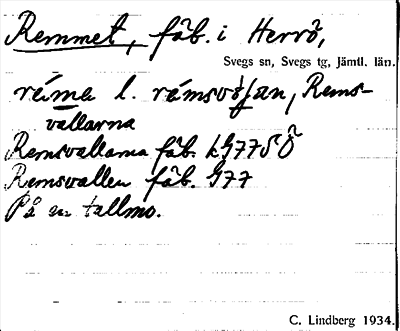 Remmet, fäb. i Herrö,
Svegs sn, Svegs tg, Jämtl. län.
réme l. rémsvọlan, Rems-
vallarna
Remsvallarna fäb. LG77SÖ
Remsvallen fäb. G77
På en tallmo.
C. Lindberg 1934.